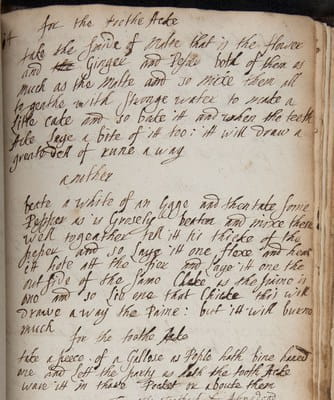 for the toothe Acke
take the Smide of Malte that is the flower
and Ginger and Peper both of them as
much as the Malte and so mixe them all
togeathe with Stronge water to make a
little cake and so bake it and when the teeth
Ake Laye a bite of it too: it will draw a
greate dell of rume away
another
beate a white of an Egge and then take Some
Pepper as is Grosely beaten and mixe them
well togeather tell it be thicke of the
peper and so Laye it one flaxe and heat
it hote att the fier and Laye it one the
out Side of the Same Cheke as the Paine is
one and so Lye one that Cheke this will
Drawe away the Paine: but it will burne
much
for the toothe Acke
take a peece of a Gallose as Peple hath bine hanged
one and lett the party as hath the tooth Acke
ware it in thare Pocket or aboute them